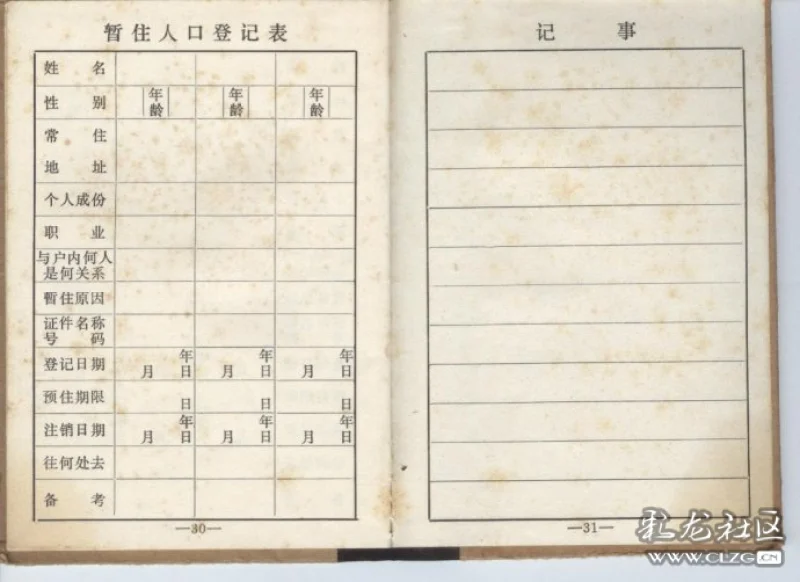 暂住人口登记表
姓名
性别 年龄 年龄 年龄
常住
地址
个人成份
职业
与户内何人
是何关系
暂住原因
证件名称
号码
登记日期 年月日 年月日 年月日
预住期限 日 日 日
注销日期 年月日 年月日 年月日
往何处去
备考
—30—
记事
—31—
彩龙社区
WWW.CLZG.CN